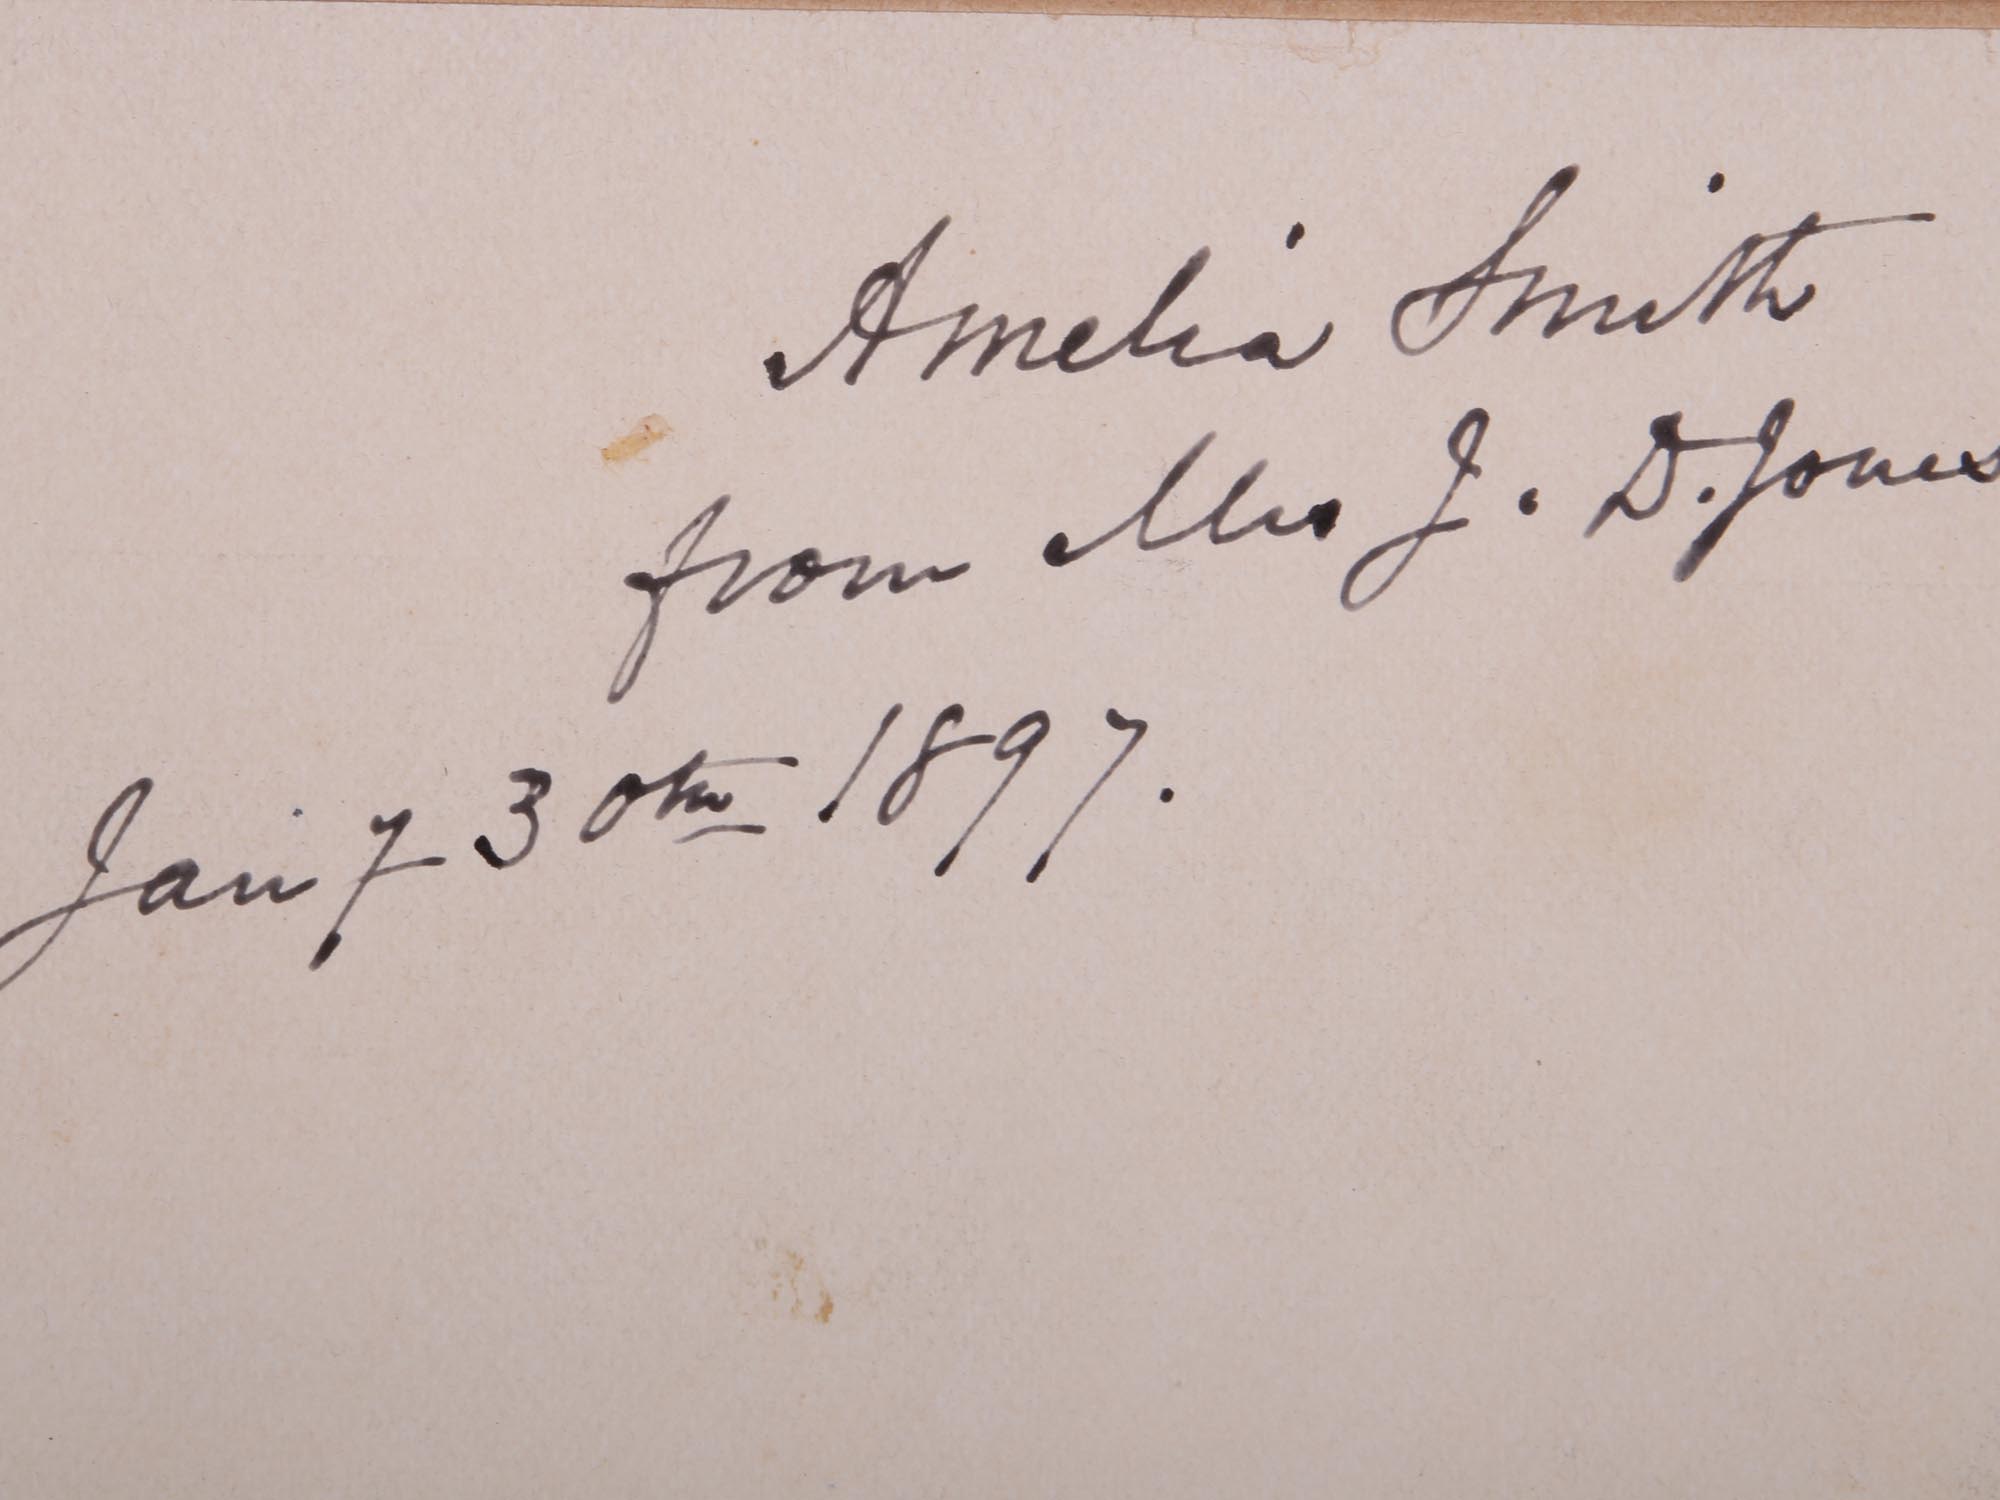 Amelia Smith
from Mrs J. D. Jones
Jan'y 30th 1897.